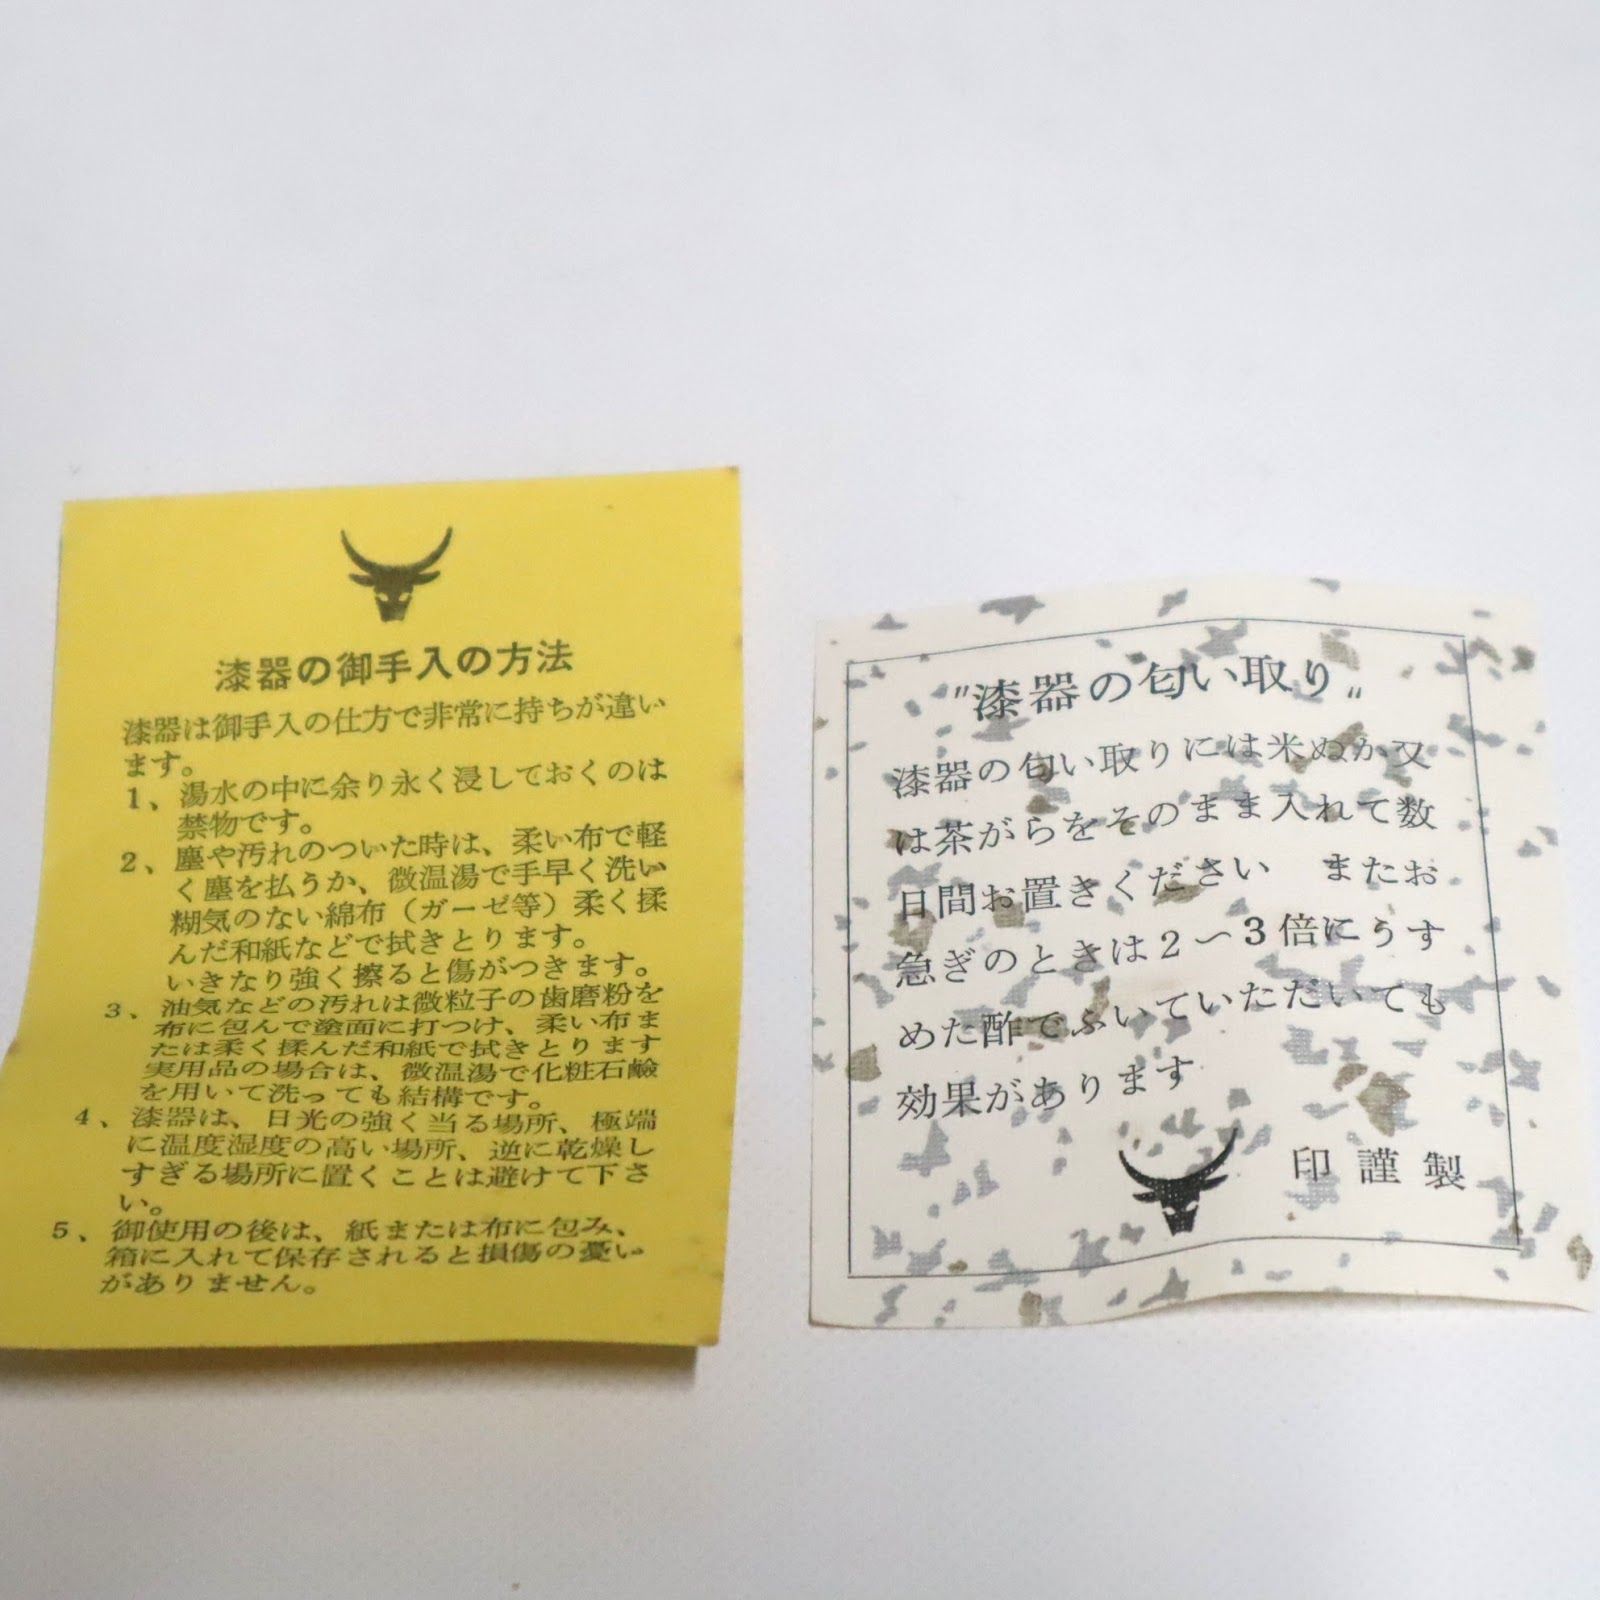 漆器の御手入の方法
漆器は御手入の仕方で非常に持ちが違い
ます。
1、湯水の中に余り永く浸しておくのは
禁物です。
2、塵や汚れのついた時は、柔い布で軽
く塵を払うか、微温湯で手早く洗い
糊気のない綿布（ガーゼ等）柔く揉
んだ和紙などで拭きとります。
いきなり強く擦ると傷がつきます。
3、油気などの汚れは微粒子の歯磨粉を
布に包んで塗面に打つけ、柔い布ま
たは柔く揉んだ和紙で拭きとります
実用品の場合は、微温湯で化粧石鹸
を用いて洗っても結構です。
4、漆器は、日光の強く当る場所、極端
に温度湿度の高い場所、逆に乾燥し
すぎる場所に置くことは避けて下さ
い。
5、御使用の後は、紙または布に包み、
箱に入れて保存されると損傷の憂い
がありません。
〃漆器の匂い取り〃
漆器の匂い取りには米ぬか又
は茶がらをそのまま入れて数
日間お置きください　またお
急ぎのときは2〜3倍にうす
めた酢でふいていただいても
効果があります
印謹製